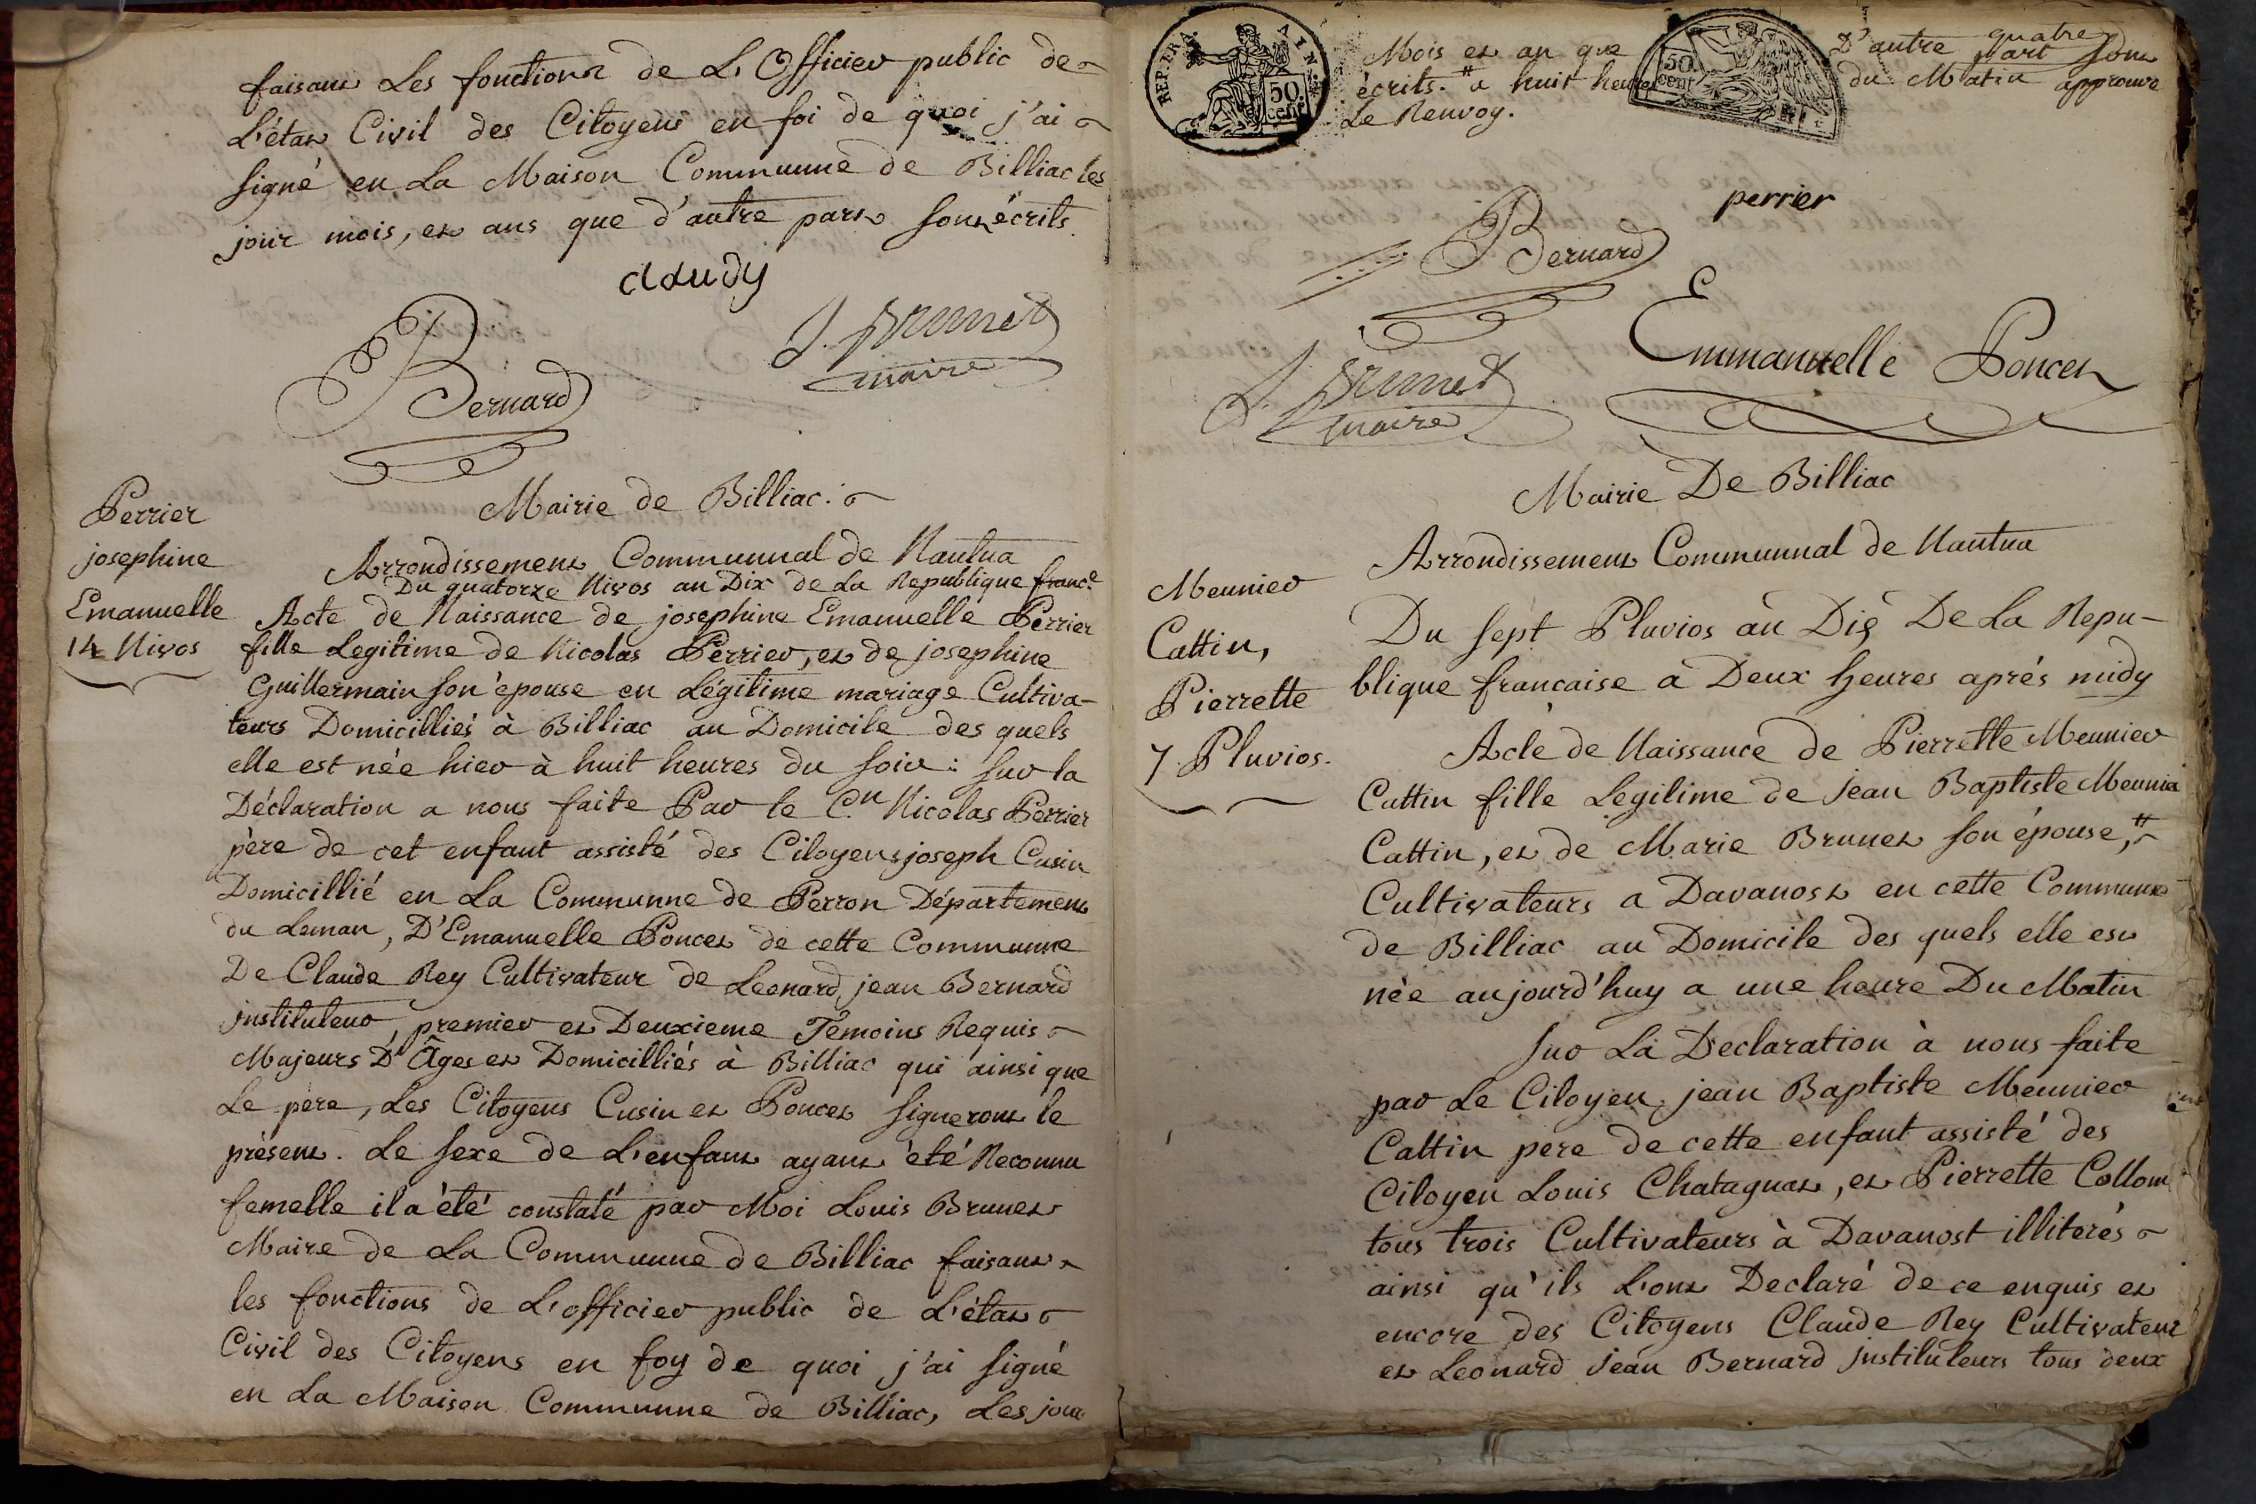 faisant Les fonctions de L'Officier public de
L'état Civil des Citoyens en foi de quoi j'ai
signé en La Maison Communne de Billiac les
jour mois, et ans que d'autre part sont écrits.
Bernard
J. Brunet
maire
Mairie de Billiac.
Perrier
josephine
Emanuelle
14 Nivos
Arrondissement Communnal de Nantua
Du quatorze Nivos an Dix de La Republique franc.e
Acte de Naissance de josephine Emanuelle Perrier
fille Legitime de Nicolas Perrier, et de josephine
Guillermain son épouse en Légitime mariage Cultiva-
teurs Domicilliés à Billiac au Domicile des quels
elle est née hier à huit heures du soir : sur la
Déclaration a nous faite Par le C.n Nicolas Perrier
père de cet enfant assisté des Citoyens joseph Cusin
Domicillié en La Communne de Perron Département
du Leman, D'Emanuelle Poncet de cette Communne
De Claude Rey Cultivateur de Leonard jean Bernard
instituteur, premier et Deuxieme Témoins Requis
Majeurs D'Âges et Domicilliés à Billiac qui ainsi que
Le pere, Les Citoyens Cusin et Poncet signeront le
présent. Le sexe de L'enfant ayant été Reconnu
femelle il a été constaté par Moi Louis Brunet
Maire de La Communne de Billiac faisant
les fonctions de L'officier public de L'état
Civil des Citoyens en foy de quoi j'ai signé
en La Maison Communne de Billiac, Les jour
REP. FRA.
AIN.
50 cent.
50 cent
Mois et an que D'autre part sont
écrits. # a huit heures quatre du Matin approuvé
Le Renvoy.
perrier
Bernard
Emmanuelle Poncet
J. Brunet
maire
Mairie De Billiac
Arrondissement Communnal de Nantua
Meunier
Cattin,
Pierrette
7 Pluvios.
Du sept Pluvios an Dix De La Repu-
blique francaise a Deux heures aprés midy
Acte de Naissance de Pierrette Meunier
Cattin fille Legitime de jean Baptiste Meunier
Cattin, et de Marie Brunet son épouse, #
Cultivateurs a Davanost en cette Communne
de Billiac au Domicile des quels elle est
née aujourd'huy a une heure Du Matin
sur La Declaration à nous faite
par Le Citoyen jean Baptiste Meunier
Cattin pere de cette enfant assisté des
Citoyen Louis Chatagnat, et Pierrette Collom
tous trois Cultivateurs à Davanost illiterés
ainsi qu'ils L'ont Declaré de ce enquis et
encore des Citoyens Claude Rey Cultivateur
et Leonard jean Bernard instituteurs tous deux